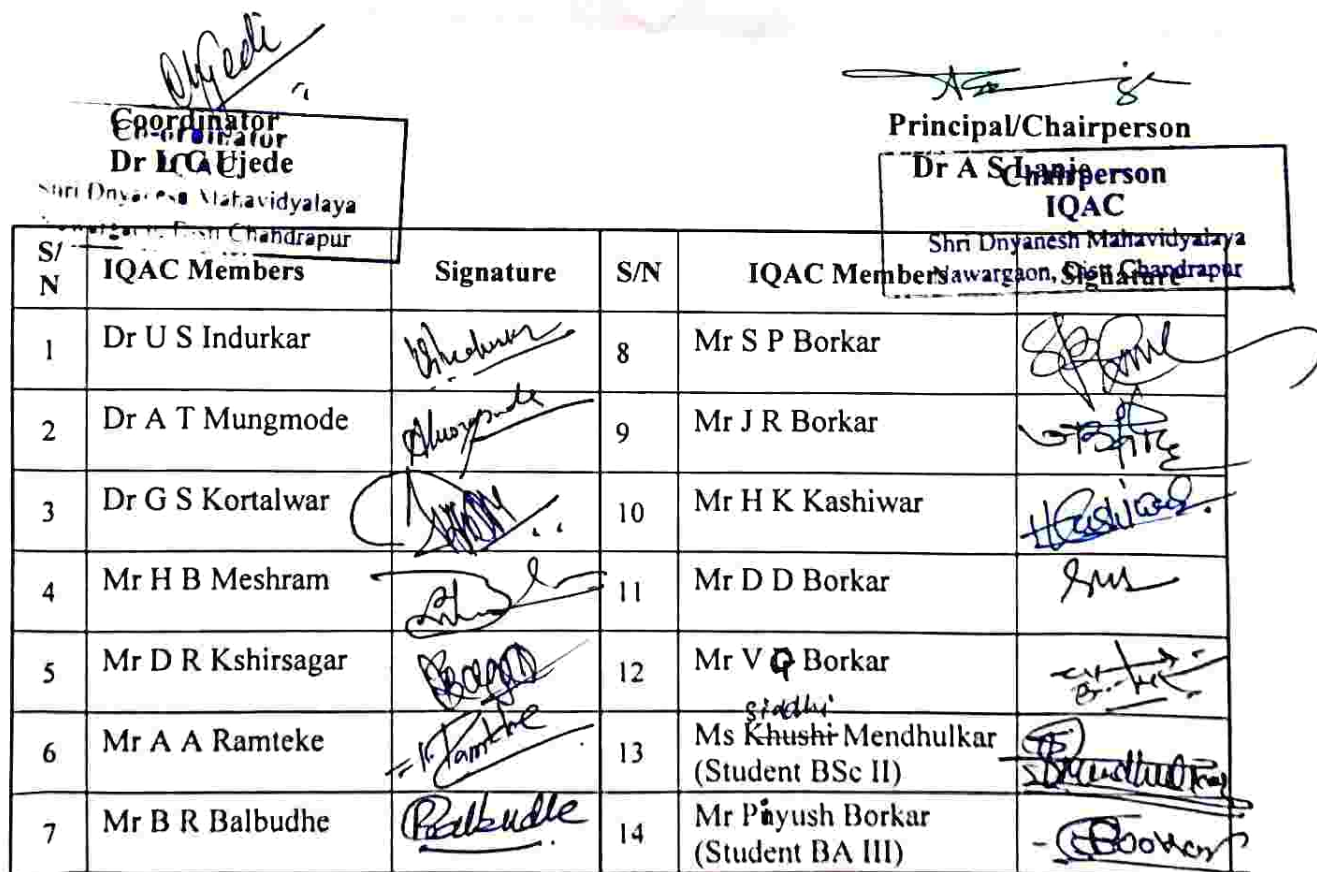 Coordinator
Co-ordinator
Dr L G Ujede
IQAC
Shri Dnyanesh Mahavidyalaya
Nawargaon, Distt Chandrapur
Principal/Chairperson
Dr A S Lanje
Chairperson
IQAC
Shri Dnyanesh Mahavidyalaya
Nawargaon, Distt Chandrapur
S/N IQAC Members Signature S/N IQAC Members Signature
1 Dr U S Indurkar 8 Mr S P Borkar
2 Dr A T Mungmode 9 Mr J R Borkar
3 Dr G S Kortalwar 10 Mr H K Kashiwar
HKashiwar
4 Mr H B Meshram 11 Mr D D Borkar
5 Mr D R Kshirsagar 12 Mr V Borkar
siddhi
6 Mr A A Ramteke 13 Ms Khushi Mendhulkar
(Student BSc II)
7 Mr B R Balbudhe Balbudhe 14 Mr Piyush Borkar
(Student BA III)